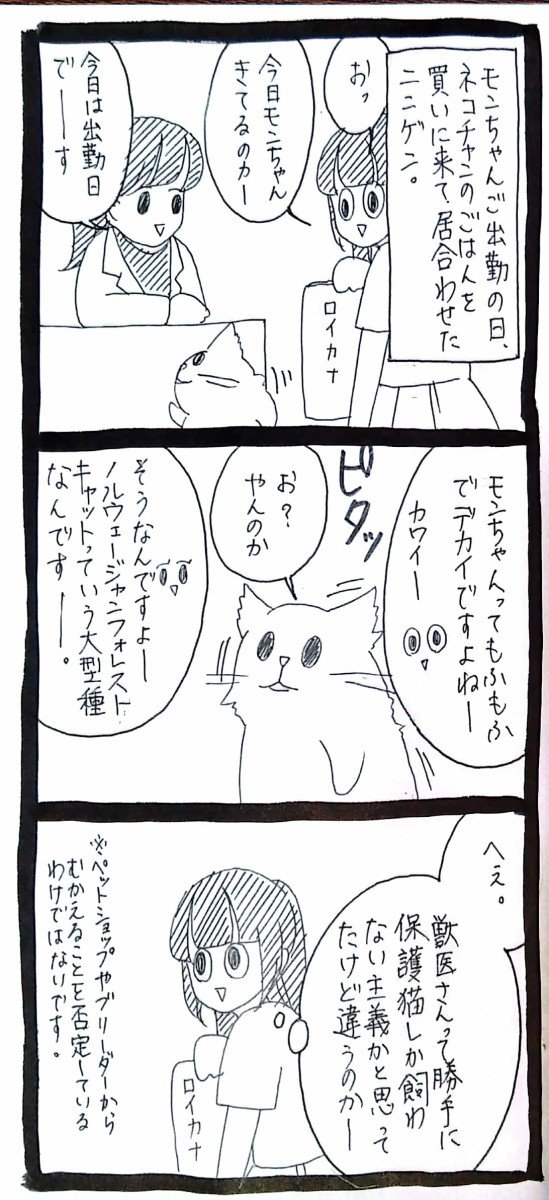 モンちゃんご出勤の日、
ネコチャンのごはんを
買いに来て、居合わせた
ニニゲン。
おっ
今日モンちゃん
きてるのカー
ロイカナ
今日は出勤日
でーーす
モンちゃんってもふもふ
でデカイですよねー
カワイー
ピタッ
お?
やんのか
そうなんですよー
ノルウェージャンフォレスト
キャットっていう大型種
なんですーー。
へぇ。
獣医さんって勝手に
保護猫しか飼わ
ない主義かと思って
たけど違うのかー
ロイカナ
※ペットショップやブリーダーから
むかえることを否定している
わけではないです。